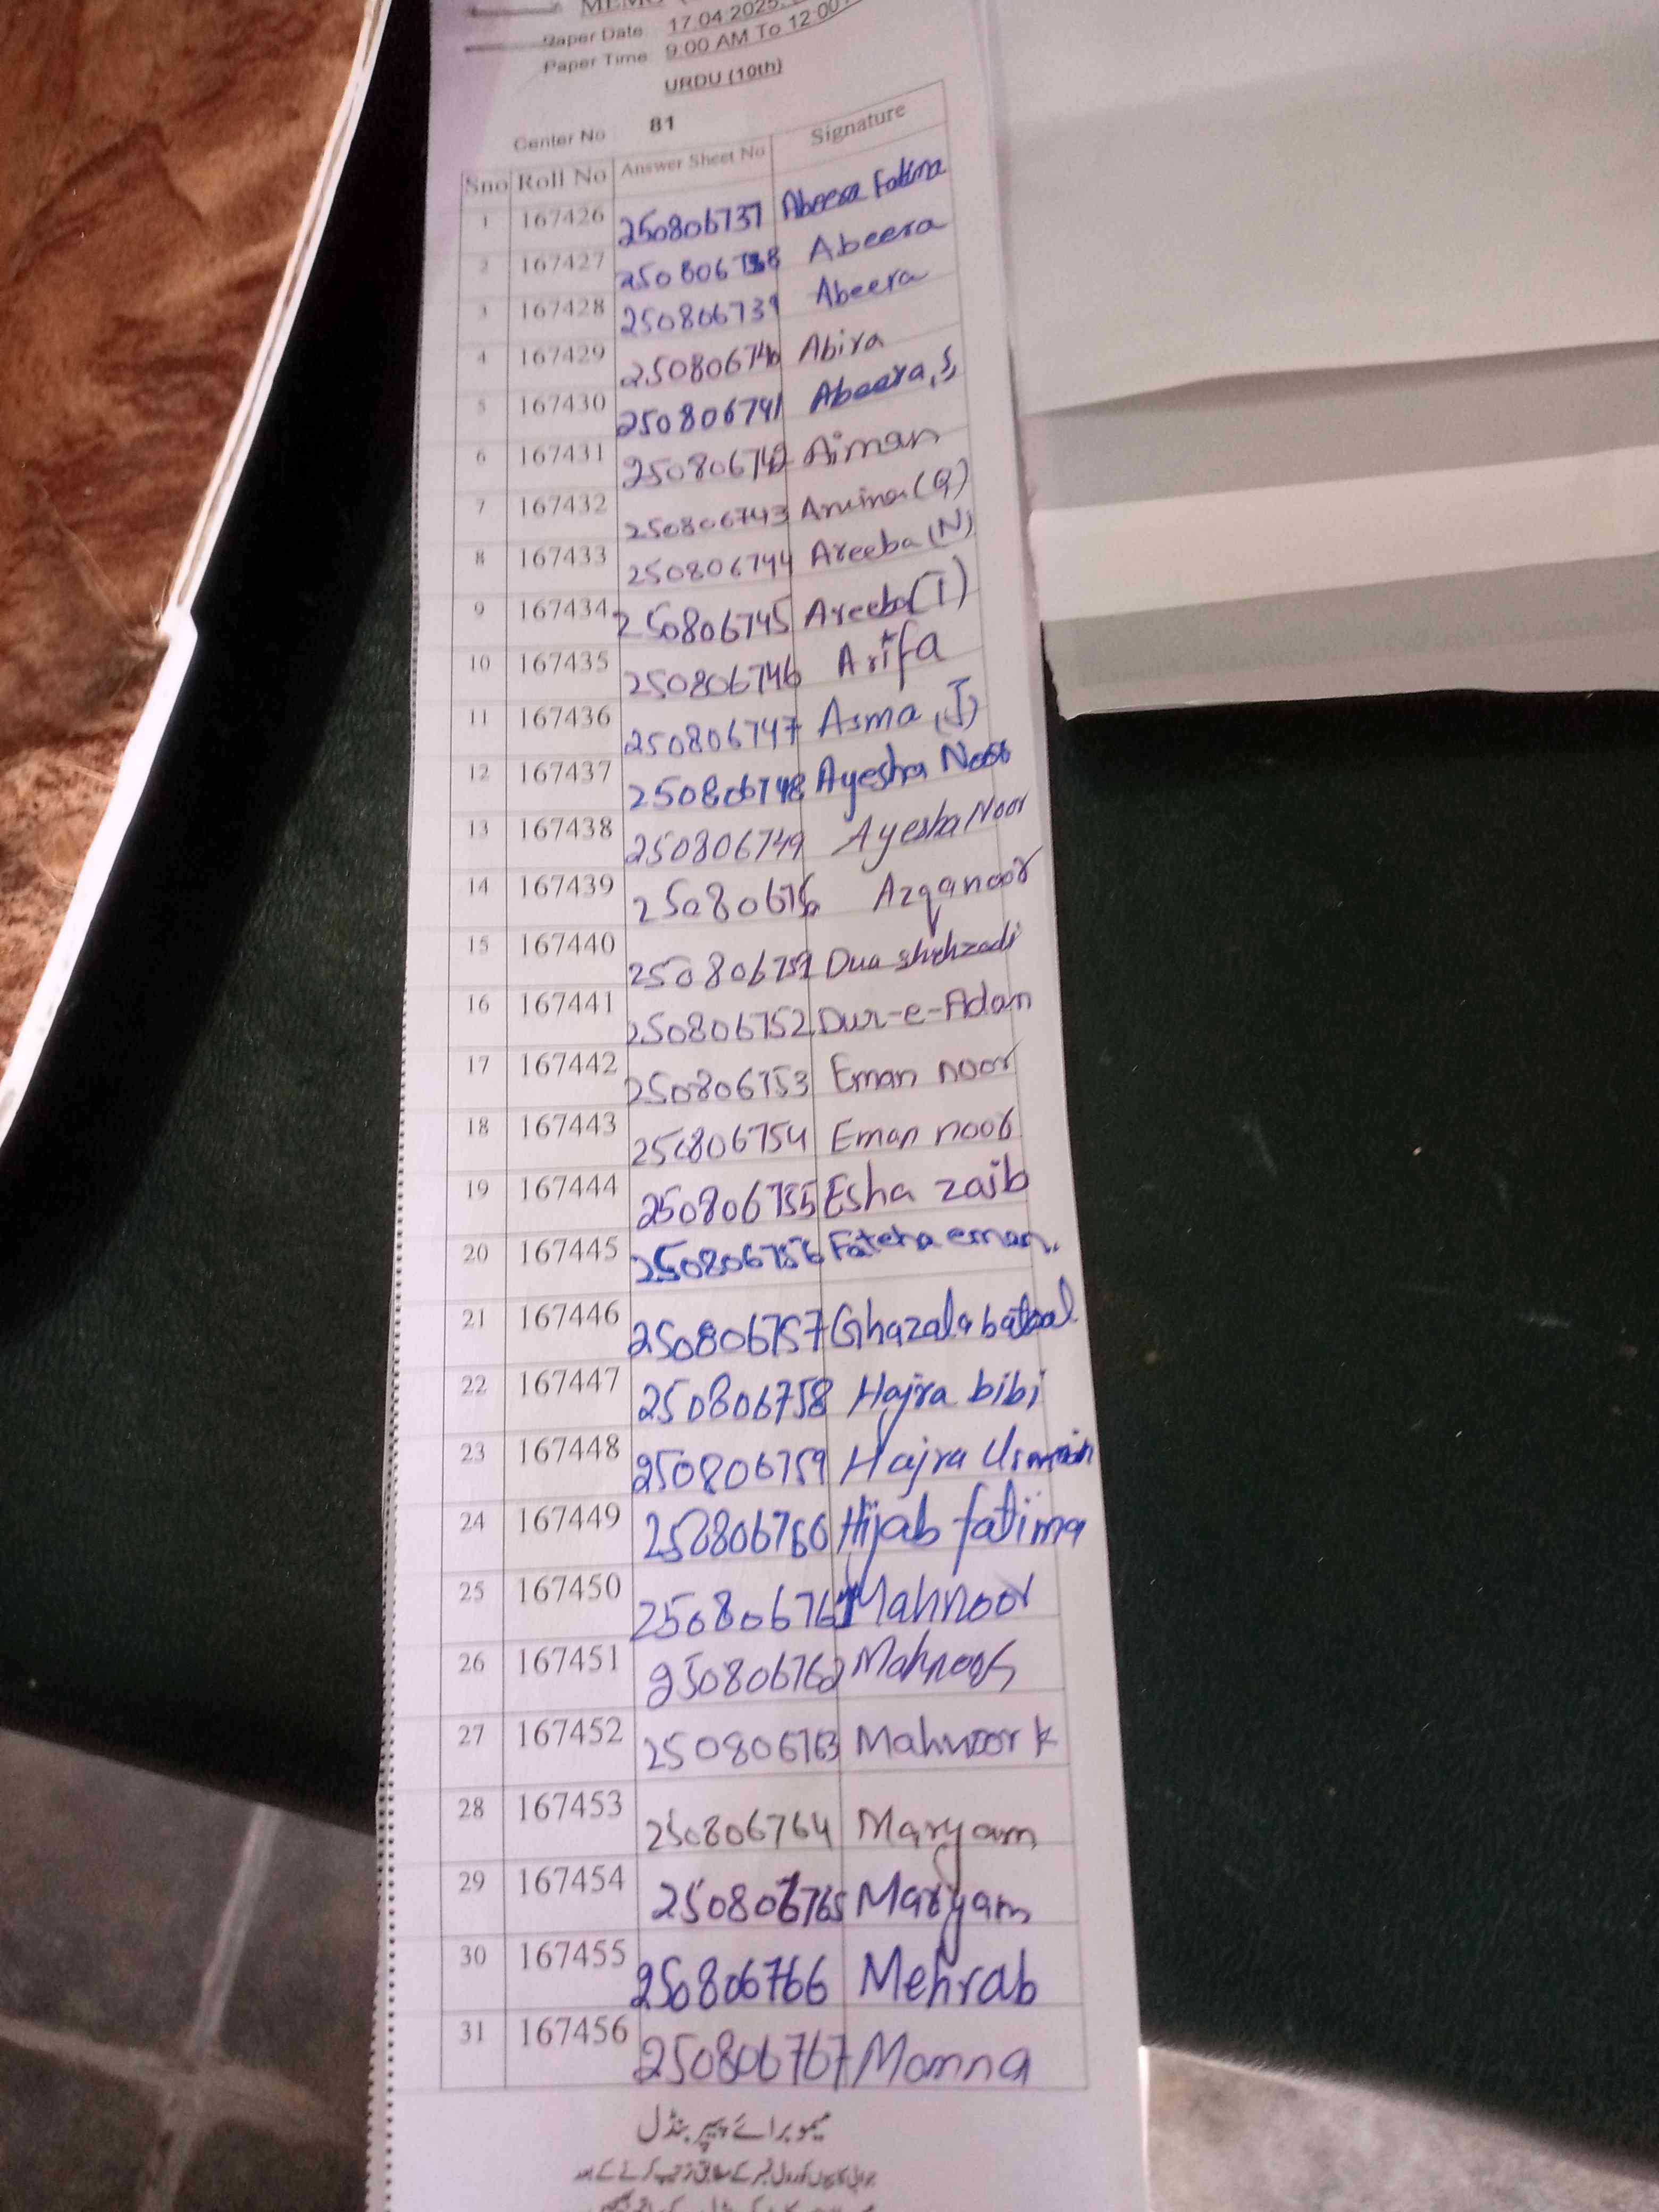 Paper Date 17.04.2025
Paper Time 9:00 AM To 12:00
URDU (10th)
Center No 81
Sno Roll No Answer Sheet No Signature
1 167426 250806737 Abeera Fatima
2 167427 250806738 Abeera
3 167428 250806739 Abeera
4 167429 250806740 Abira
5 167430 250806741 Abeera,S
6 167431 250806742 Aiman
7 167432 250806743 Amina(Q)
8 167433 250806744 Areeba(N)
9 167434 250806745 Areeba(I)
10 167435 250806746 Arifa
11 167436 250806747 Asma (J)
12 167437 250806748 Ayesha Noor
13 167438 250806749 Ayesha Noor
14 167439 25080675 Azqanoor
15 167440 250806751 Dua shehzadi
16 167441 250806752 Dur-e-Adan
17 167442 250806753 Eman noor
18 167443 250806754 Eman noor
19 167444 250806755 Esha zaib
20 167445 250806756 Fateha eman.
21 167446 250806757 Ghazala batool
22 167447 250806758 Hajra bibi
23 167448 250806759 Hajra Usman
24 167449 250806760 Hijab fatima
25 167450 250806761 Mahnoor
26 167451 250806762 Mahnoor
27 167452 250806763 Mahnoor k
28 167453 250806764 Maryam
29 167454 250806765 Maryam
30 167455 250806766 Mehrab
31 167456 250806767 Momna
میمو برائے پیپر بنڈل